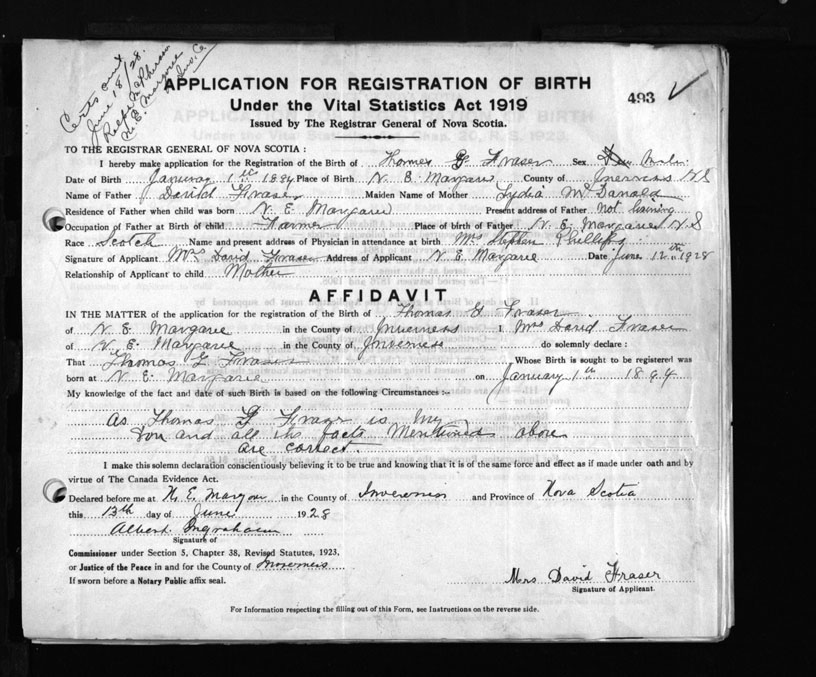 Certs sent
June 18/28.
Ralph McPherson
N. E. Margaree
Inv. Co
APPLICATION FOR REGISTRATION OF BIRTH
Under the Vital Statistics Act 1919
Issued by The Registrar General of Nova Scotia.
493 ✓
TO THE REGISTRAR GENERAL OF NOVA SCOTIA :
I hereby make application for the Registration of the Birth of Thomas G Fraser Sex Male
Date of Birth January 1st 1894 Place of Birth N E Margarie County of Inverness N S
Name of Father David Fraser Maiden Name of Mother Lydia McDanald
Residence of Father when child was born N. E Margarie Present address of Father not living
Occupation of Father at Birth of child Farmer Place of birth of Father N. E Margarie N. S
Race Scotch Name and present address of Physician in attendance at birth Mrs Stephen
Signature of Applicant Mrs David Fraser Address of Applicant N E Margarie Date June 12th 1928
Relationship of Applicant to child Mother
AFFIDAVIT
IN THE MATTER of the application for the registration of the Birth of Thomas G Fraser
of N. E. Margarie in the County of Inverness I, Mrs David Fraser
of N. E Margarie in the County of Inverness do solemnly declare :
That Thomas G Fraser Whose Birth is sought to be registered was
born at N. E. Margarie on January 1th 1894
My knowledge of the fact and date of such Birth is based on the following Circumstances :-
As Thomas G Fraser is My
Son and all the facts Mentioned above
are correct.
I make this solemn declaration conscientiously believing it to be true and knowing that it is of the same force and effect as if made under oath and by
virtue of The Canada Evidence Act.
Declared before me at N. E. Margaree in the County of Inverness and Province of Nova Scotia
this 13th day of June 1928
Albert Ingraham
Signature of
Commissioner under Section 5, Chapter 38, Revised Statutes, 1923,
or Justice of the Peace in and for the County of Inverness
If sworn before a Notary Public affix seal.
Mrs David Fraser
Signature of Applicant.
For Information respecting the filling out of this Form, see Instructions on the reverse side.